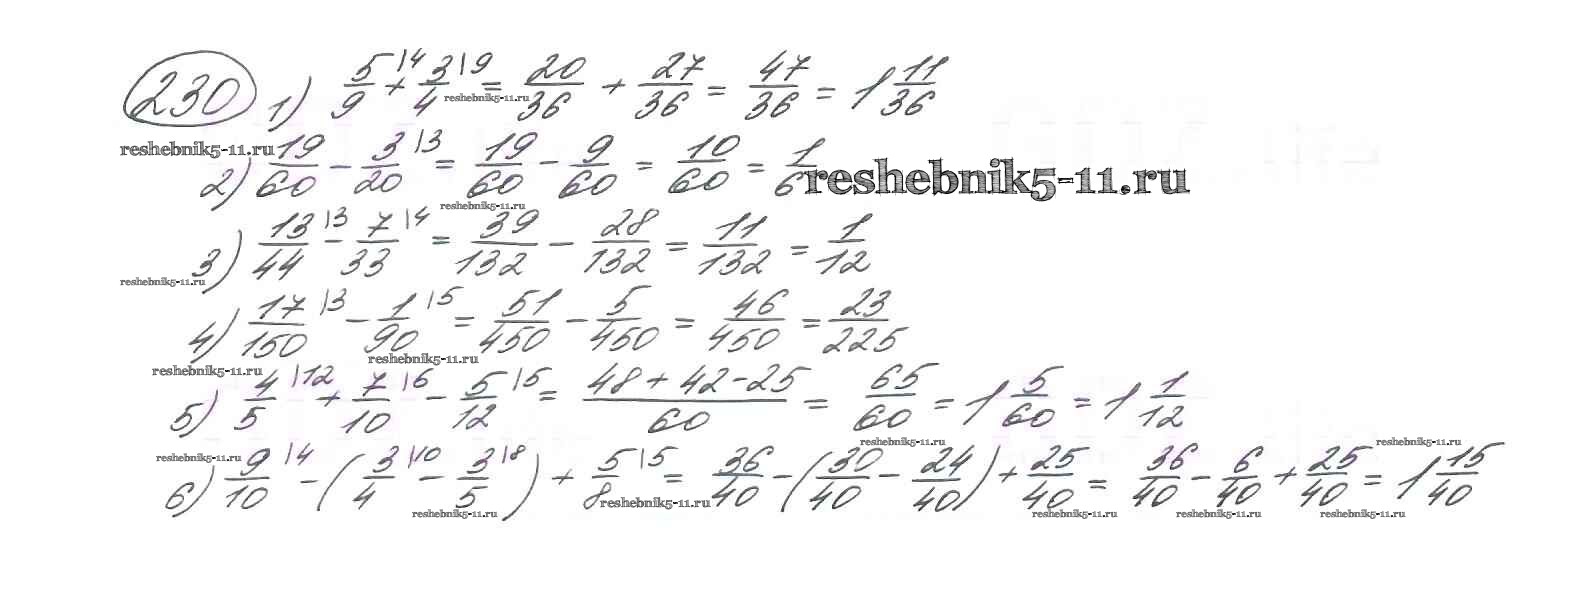 230 1) 5/9 |4 + 3/4 |9 = 20/36 + 27/36 = 47/36 = 1 11/36
reshebnik5-11.ru
reshebnik5-11.ru
2) 19/60 - 3/20 |3 = 19/60 - 9/60 = 10/60 = 1/6
reshebnik5-11.ru
reshebnik5-11.ru
3) 13/44 |3 - 7/33 |4 = 39/132 - 28/132 = 11/132 = 1/12
reshebnik5-11.ru
4) 17/150 |3 - 1/90 |5 = 51/450 - 5/450 = 46/450 = 23/225
reshebnik5-11.ru
reshebnik5-11.ru
5) 4/5 |12 + 7/10 |6 - 5/12 |5 = (48 + 42 - 25)/60 = 65/60 = 1 5/60 = 1 1/12
reshebnik5-11.ru reshebnik5-11.ru reshebnik5-11.ru
6) 9/10 |4 - (3/4 |10 - 3/5 |8) + 5/8 |5 = 36/40 - (30/40 - 24/40) + 25/40 = 36/40 - 6/40 + 25/40 = 1 15/40
reshebnik5-11.ru
reshebnik5-11.ru reshebnik5-11.ru reshebnik5-11.ru reshebnik5-11.ru